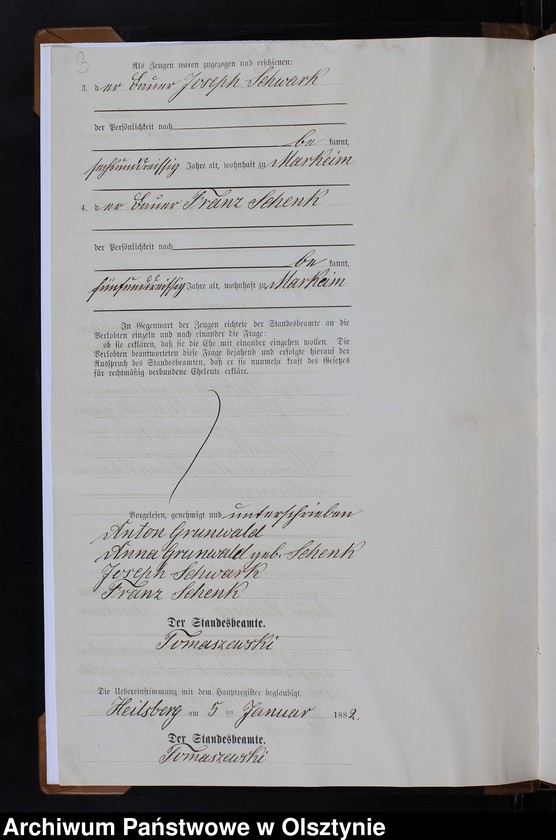 3
Als Zeugen waren zugezogen und erschienen:
3. der Bauer Joseph Schwark
der Persönlichkeit nach
be kannt,
sechsunddreissig Jahre alt, wohnhaft zu Markeim
4. der Bauer Franz Schenk
der Persönlichkeit nach
be kannt,
fünfunddreissig Jahre alt, wohnhaft zu Markeim
In Gegenwart der Zeugen richtete der Standesbeamte an die
Verlobten einzeln und nach einander die Frage:
ob sie erklären, daß sie die Ehe mit einander eingehen wollen. Die
Verlobten beantworteten diese Frage bejahend und erfolgte hierauf der
Ausspruch des Standesbeamten, daß er sie nunmehr kraft des Gesetzes
für rechtmäßig verbundene Eheleute erkläre.
Vorgelesen, genehmigt und unterschrieben
Anton Grunwald
Anna Grunwald geb. Schenk
Joseph Schwark
Franz Schenk
Der Standesbeamte.
Tomaszewski
Die Uebereinstimmung mit dem Hauptregister beglaubigt.
Heilsberg am 5 ten Januar 1882.
Der Standesbeamte.
Tomaszewski
Archiwum Państwowe w Olsztynie